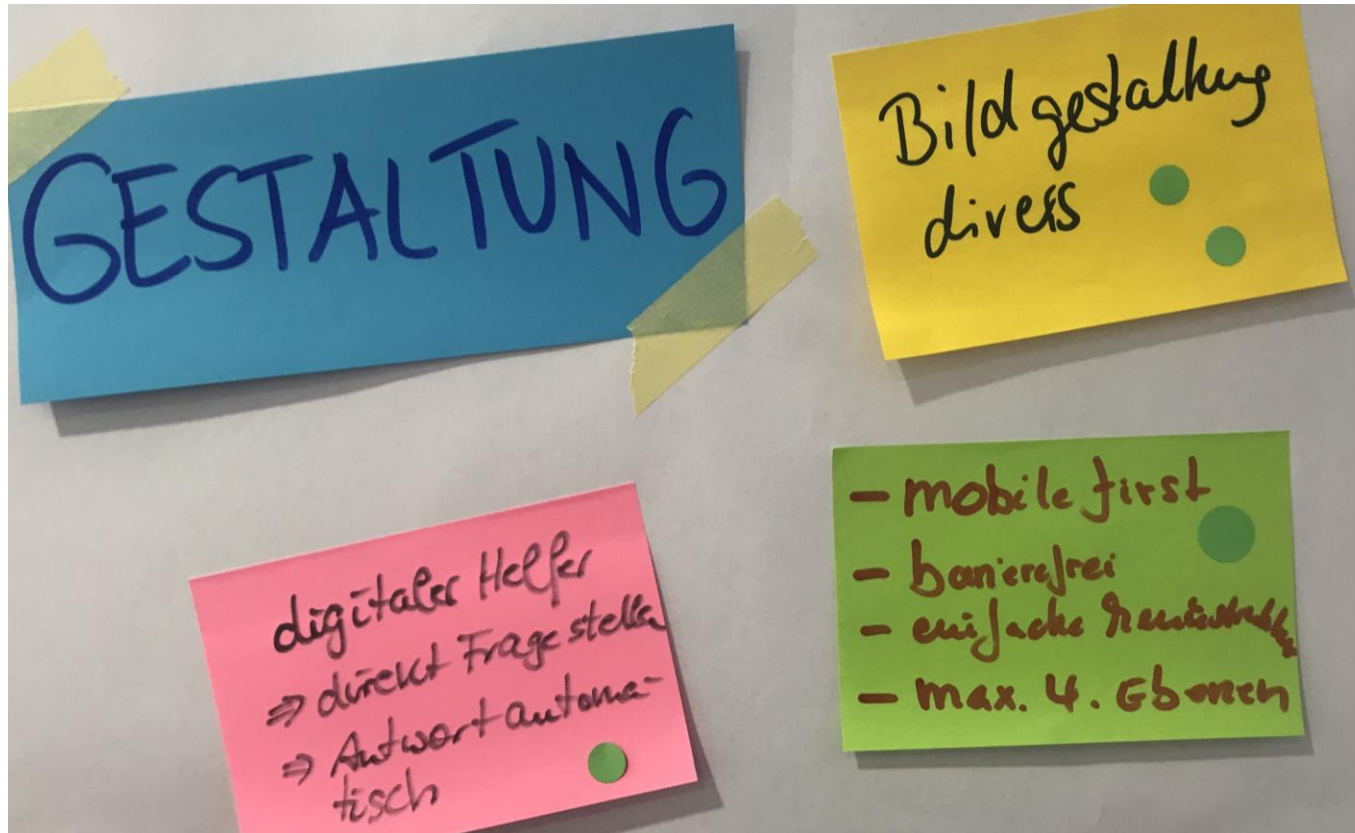 GESTALTUNG
Bildgestaltung
divers
digitaler Helfer
⇒ direkt Frage stellen
⇒ Antwort automa-
tisch
- mobile first
- barrierefrei
- einfache
- max. 4. Ebenen